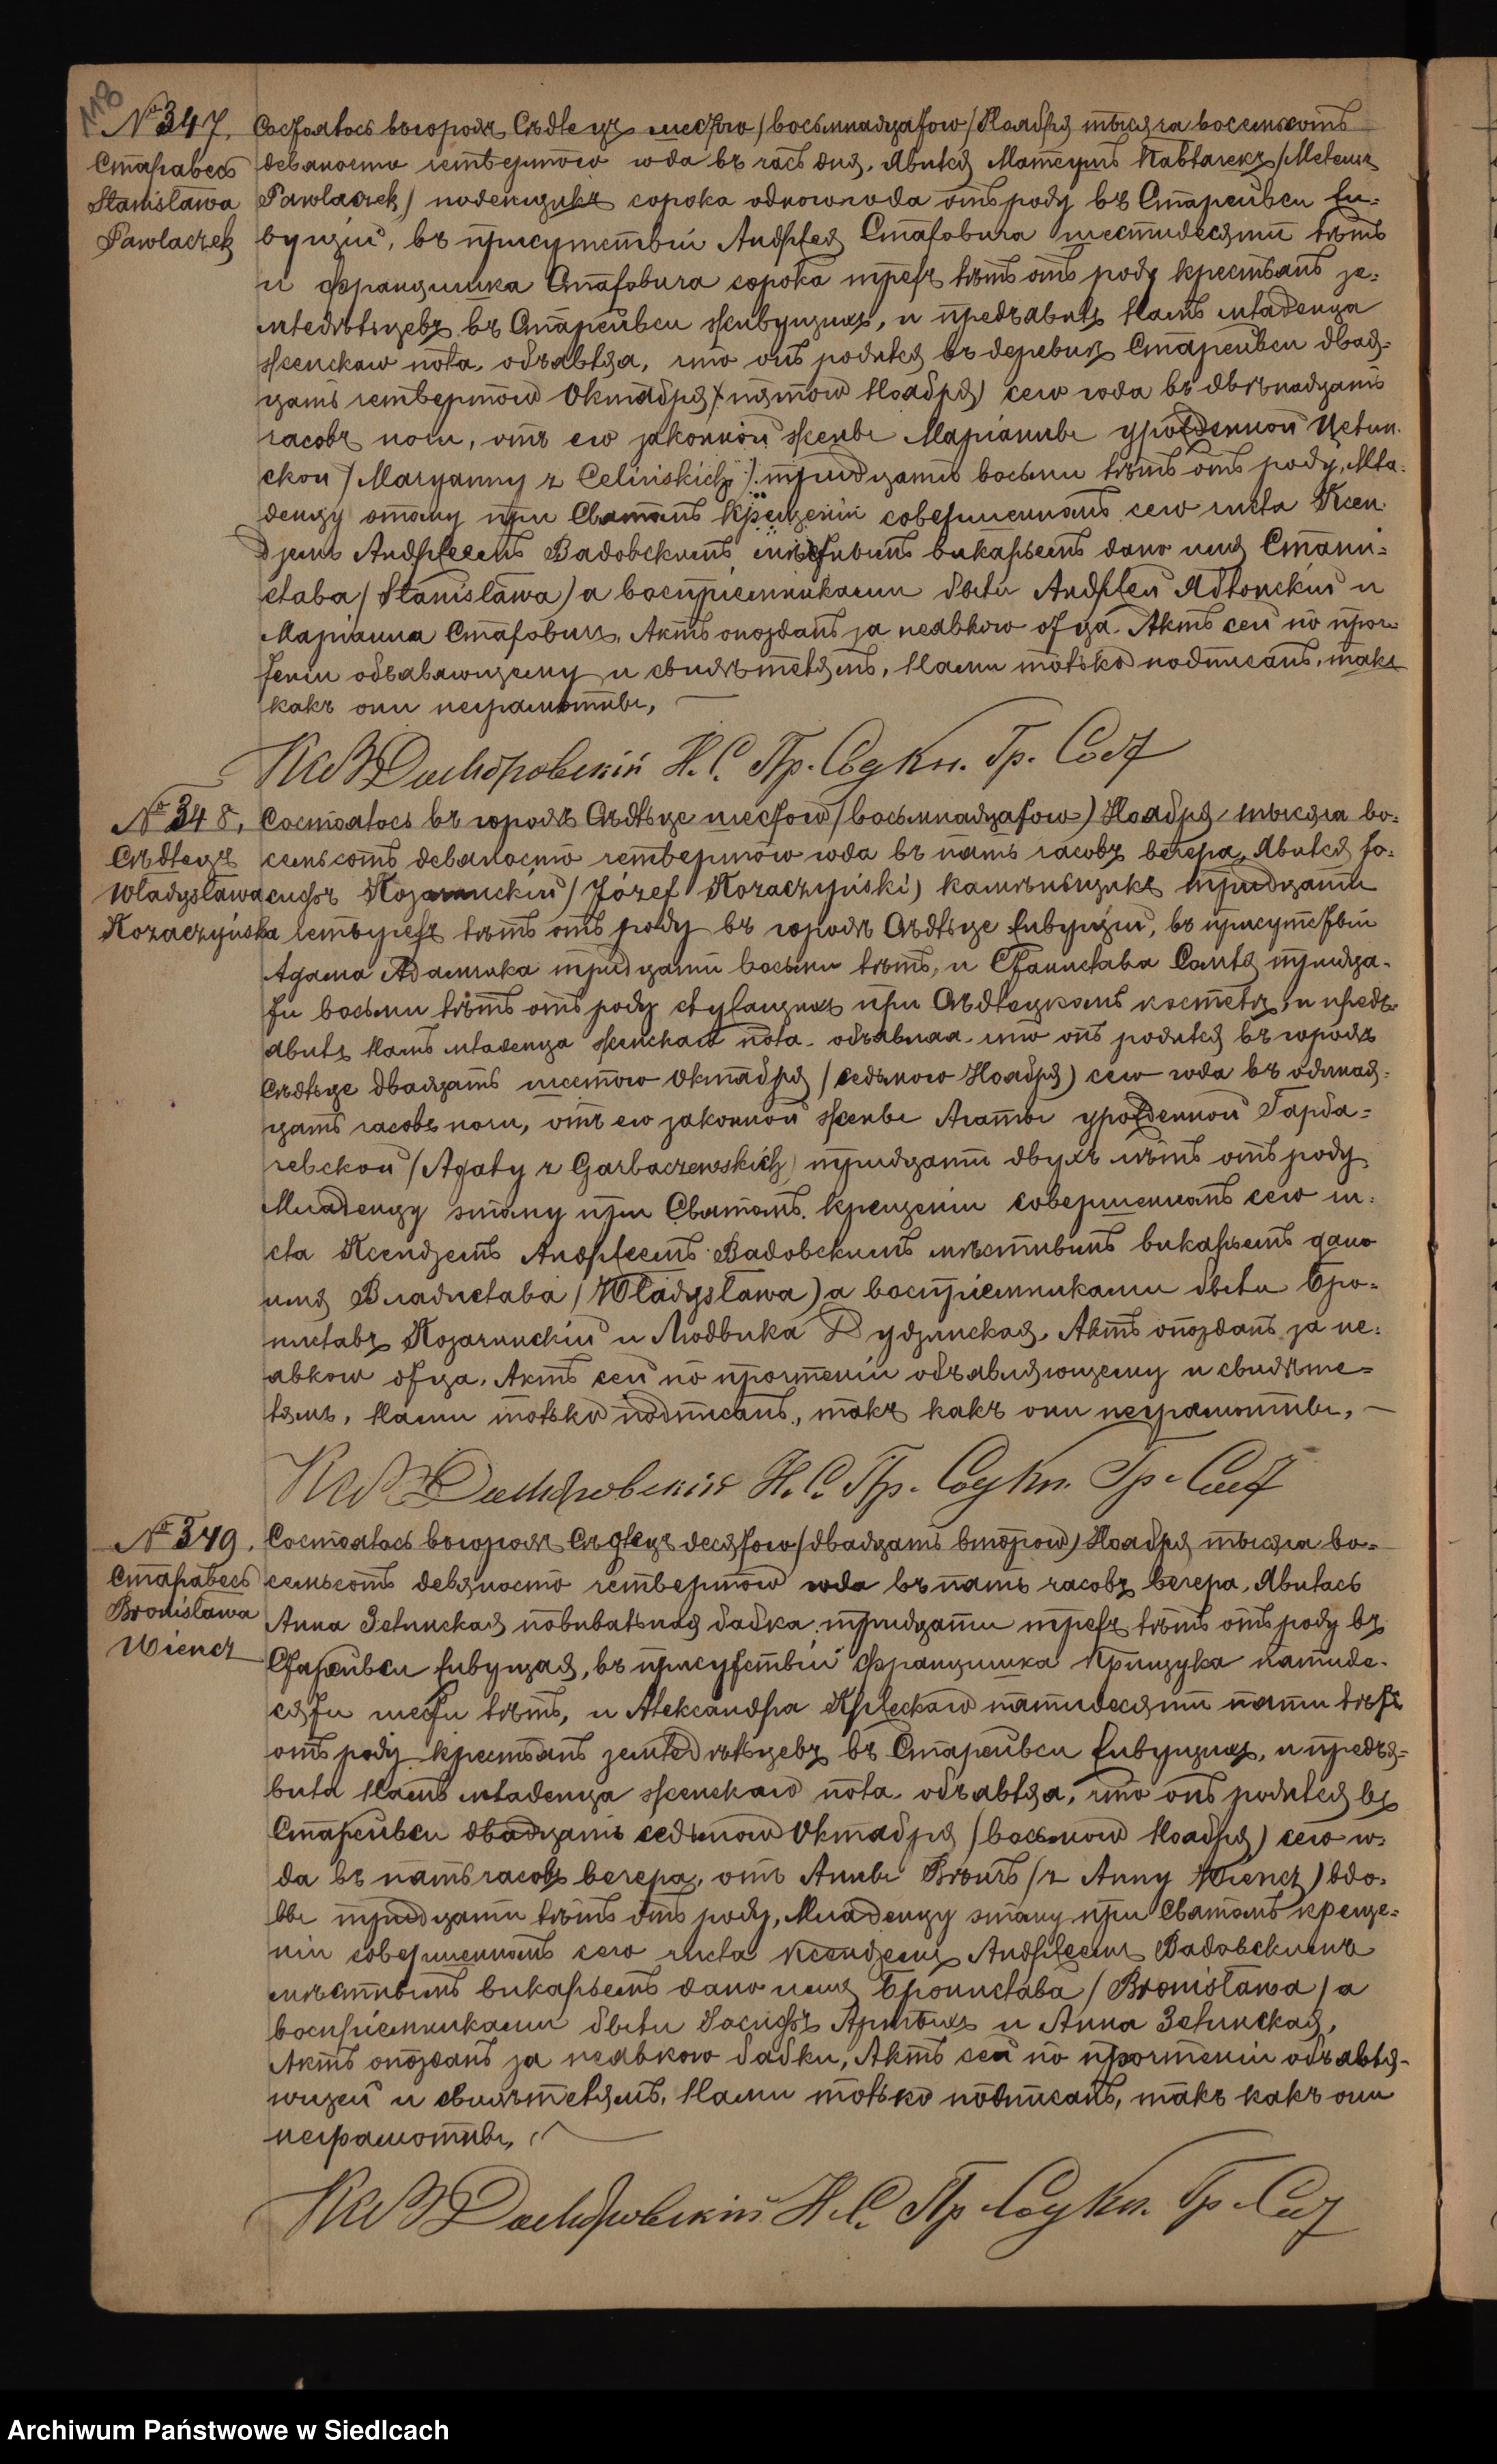 118
№ 347.
Старавесь
Stanisława
Pawlaczek
Состоялось въ городѣ Сѣдлецѣ шестого /восьмнадцатого/ Ноября тысяча восемьсотъ
девяносто четвертого года въ часъ дня. Явился Матеушъ Павлачекъ /Mateusz
Pawlaczek/ поденщикъ сорока одного года отъ роду въ Старейвси жи-
вущій, въ присутствіи Андрея Стафовича шестидесяти лѣтъ
и Францишка Стафовича сорока трехъ лѣтъ отъ роду крестьянъ зе-
мледѣльцевъ въ Старейвси живущихъ, и предъявилъ Намъ младенца
женскаго пола, объявляя, что онъ родился въ деревнѣ Старейвси двад-
цать четвертого Октября /пятого Ноября) сего года въ двѣнадцать
часовъ ночи, отъ его законной жены Маріанны урожденной Целин-
ской /Maryanny z Celińskich/ тридцать восьми лѣтъ отъ роду. Мла-
денцу этому при Святомъ Крещеніи совершенномъ сего числа Ксен-
дземъ Андреемъ Вадовскимъ мѣстнымъ викарьемъ дано имя Стани-
слава /Stanisława/ а воспріемниками были Андрей Яблонскій и
Маріанна Стафовичъ. Актъ опозданъ за неявкою отца. Актъ сей по проч-
теніи объявляющему и свидѣтелямъ, Нами только подписанъ, такъ
какъ они неграмотны,
Кс В Домбровскій Н. С. Пр. Сод Кн. Гр. Сост
№ 348.
Сѣдлецъ
Władysława
Kozaczyńska
Состоялось въ городѣ Сѣдльце шестого /восьмнадцатого) Ноября тысяча во-
семьсотъ девяносто четвертого года въ пять часовъ вечера, Явился Іо-
сифъ Козачинскій /Józef Kozaczyński) каменьщикъ тридцати
четырехъ лѣтъ отъ роду въ городѣ Сѣдльце живущій, въ присутствіи
Адама Адамчика тридцати восьми лѣтъ, и Станислава Сомля тридца-
ти восьми лѣтъ отъ роду служащихъ при Сѣдлецкомъ костелѣ, и предъ-
явилъ Намъ младенца женскаго пола. объявляя. что онъ родился въ городѣ
Сѣдльце двадцать шестого Октября /седьмого Ноября) сего года въ одинад-
цать часовъ ночи, отъ его законной жены Агаты урожденной Гарба-
чевской /Agaty z Garbaczewskich) тридцати двухъ лѣтъ отъ роду
Младенцу этому при Святомъ Крещеніи совершенномъ сего чи-
сла Ксендземъ Андреемъ Вадовскимъ мѣстнымъ викарьемъ дано
имя Владислава /Władysława) а воспріемниками были Бро-
ниславъ Козачинскій и Людвика Дудзинская. Актъ опозданъ за не-
явкою отца. Актъ сей по прочтеніи объявляющему и свидѣте-
лямъ, Нами только подписанъ, такъ какъ они неграмотны,
Кс В Домбровскій Н. С. Пр. Сод Кн. Гр. Сост
№ 349.
Старавесь
Bronisława
Wiencz
Состоялось въ городѣ Сѣдлецѣ десятого /двадцать второго) Ноября тысяча во-
семьсотъ девяносто четвертого года въ пять часовъ вечера, Явилась
Анна Зелинская повивальная бабка тридцати трехъ лѣтъ отъ роду въ
Старейвси живущая, въ присутствіи Францишка Прищука пятиде-
сяти шести лѣтъ, и Александра Кржескаго пятидесяти пяти лѣтъ
отъ роду крестьянъ земледѣльцевъ въ Старейвси живущихъ, и предъя-
вила Намъ младенца женскаго пола. объявляя, что онъ родился въ
Старейвси двадцать седьмого Октября /восьмого Ноября) сего го-
да въ пять часовъ вечера, отъ Анны Вѣнчъ /z Anny Wiencz) вдо-
вы тридцати лѣтъ отъ роду, Младенцу этому при Святомъ креще-
ніи совершенномъ сего числа Ксендземъ Андреемъ Вадовскимъ
мѣстнымъ викарьемъ дано имя Бронислава /Bronisława/ а
воспріемниками были Іосифъ Артыхъ и Анна Зелинская,
Актъ опозданъ за неявкою бабки, Актъ сей по прочтеніи объявля-
ющей и свидѣтелямъ, Нами только подписанъ, такъ какъ они
неграмотны,
Кс В Домбровскій Н. С. Пр. Сод Кн. Гр. Сост
Archiwum Państwowe w Siedlcach